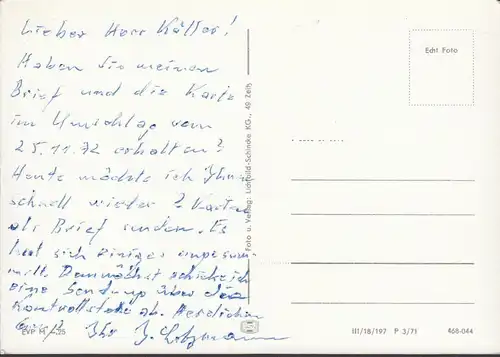 Lieber Herr Käller!
Haben Sie meinen
Brief und die Karte
im Umschlag vom
25.11.72 erhalten?
Heute möchte ich Ihnen
schnell wieder 2 Karten
als Brief senden. Es
hat sich einiges angesam-
melt. Demnächst schicke ich
eine Sendung über die
Kontrollstelle ab. Herzlichen
Gruß Ihr J.
EVP M 0,25
Foto u. Verlag: Lichtbild-Schincke, KG., 49 Zeitz
Echt Foto
III/18/197 P 3/71 468-044